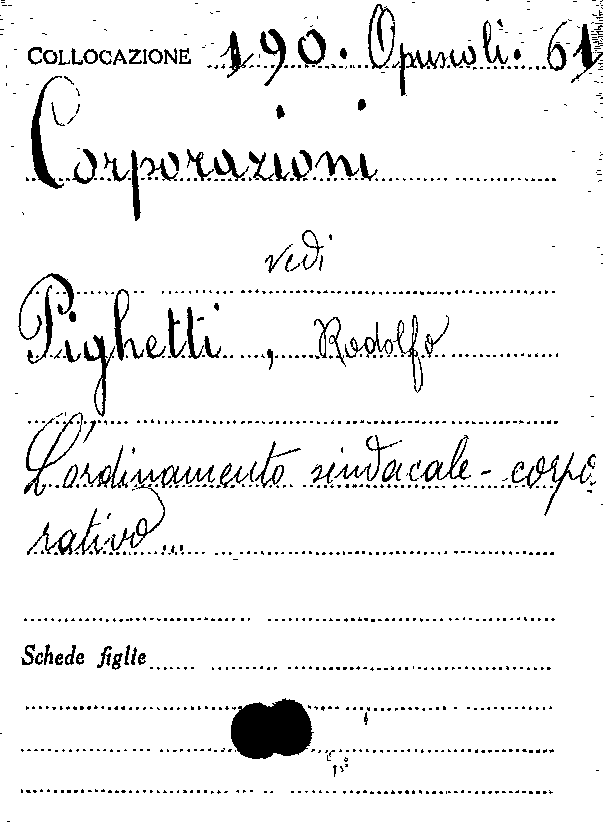 COLLOCAZIONE 190. Opuscoli. 61
Corporazioni
vedi
Pighetti, Rodolfo
L'ordinamento sindacale-corpo
rativo...
Schede figlie